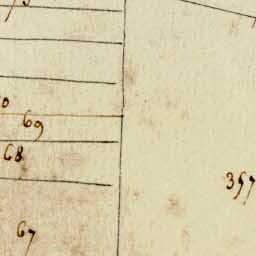 69
68
357
67